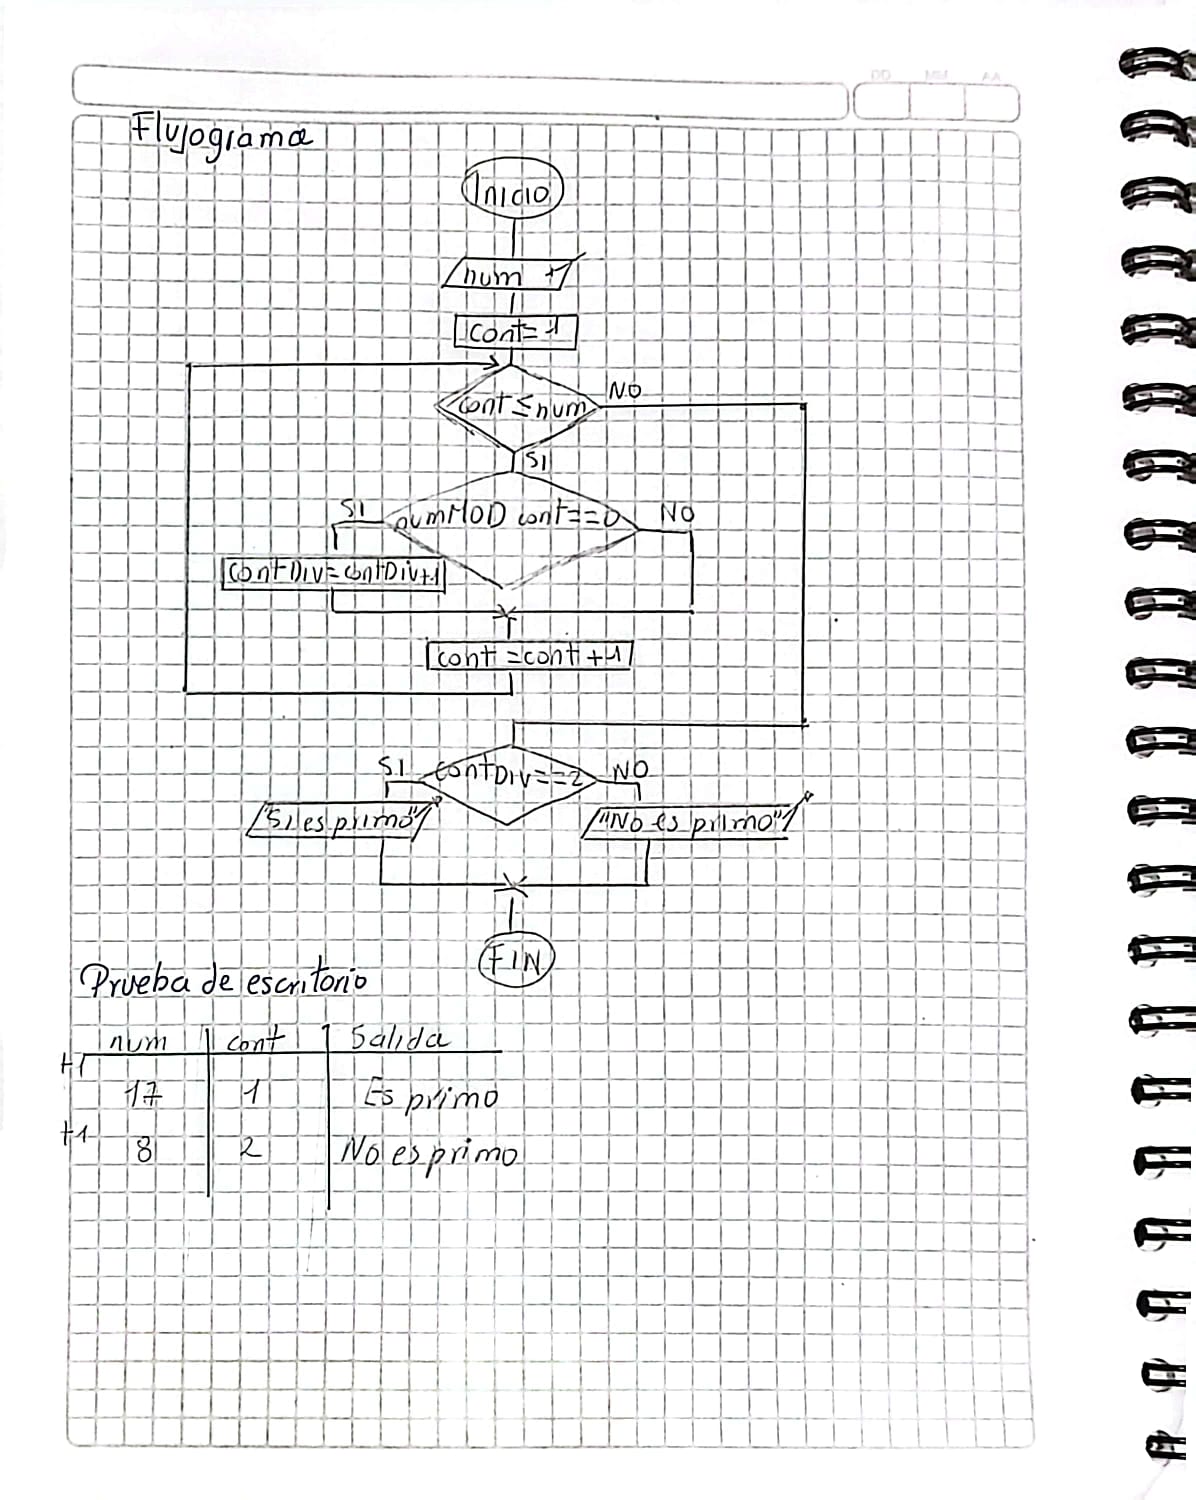 DD MM AA
Flujograma
Inicio
num
cont=1
cont ≤ num
NO
SI
SI
num MOD cont==0
NO
contDiv=contDiv+1
cont=cont+1
SI
contDiv==2
NO
"Si es primo"
"No es primo"
FIN
Prueba de escritorio
num cont Salida
17 1 Es primo
8 2 No es primo